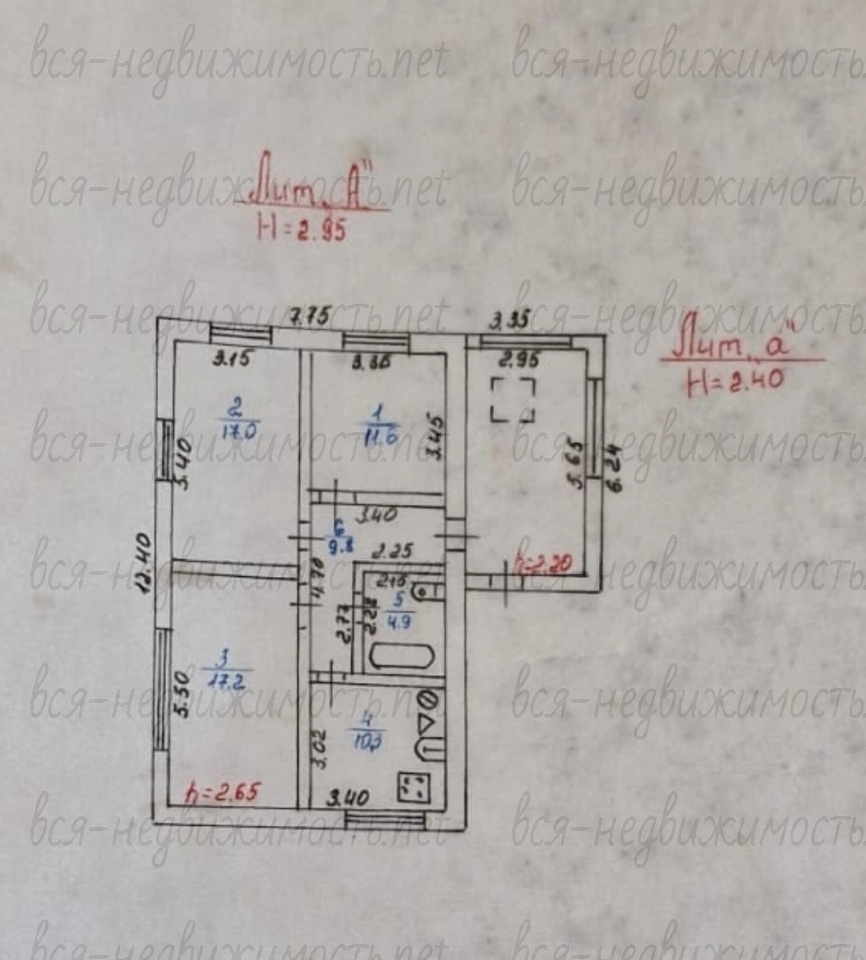 вся-недвижимость.net вся-недвижимость
Лит. „А"
H=2.95
вся-недвижимость.net вся-недвижимость
7.75
3.35
Лит. „а"
H=2.40
вся-недвижимость.net вся-недвижимость
3.15
2.95
2
17.0
1
11.6
3.45
5.40
5.65
6.24
вся-недвижимость.net вся-недвижимость
3.40
6
9.8
2.25
12.40
4.70
h=2.20
2.15
5
4.9
2.77
вся-недвижимость.net вся-недвижимость
3
17.2
5.50
4
10.3
3.02
h=2.65
3.40
вся-недвижимость.net вся-недвижимость
вся-недвижимость.net вся-недвижимость
вся-недвижимость.net вся-недвижимость